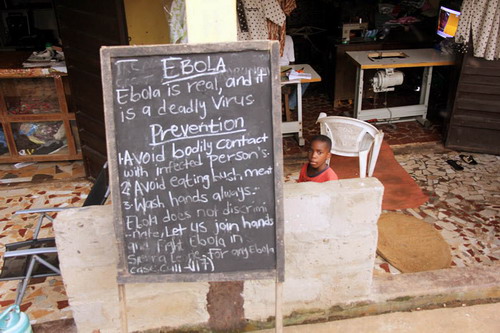 EBOLA
Ebola is real, and it
is a deadly Virus
Prevention
1. Avoid bodily contact
with infected person's.
2. Avoid eating bush meat
3. Wash hands always.
Ebola does not discrimi
nate, Let us join hands
and fight Ebola in
Sierra Leone for any Ebola
case call